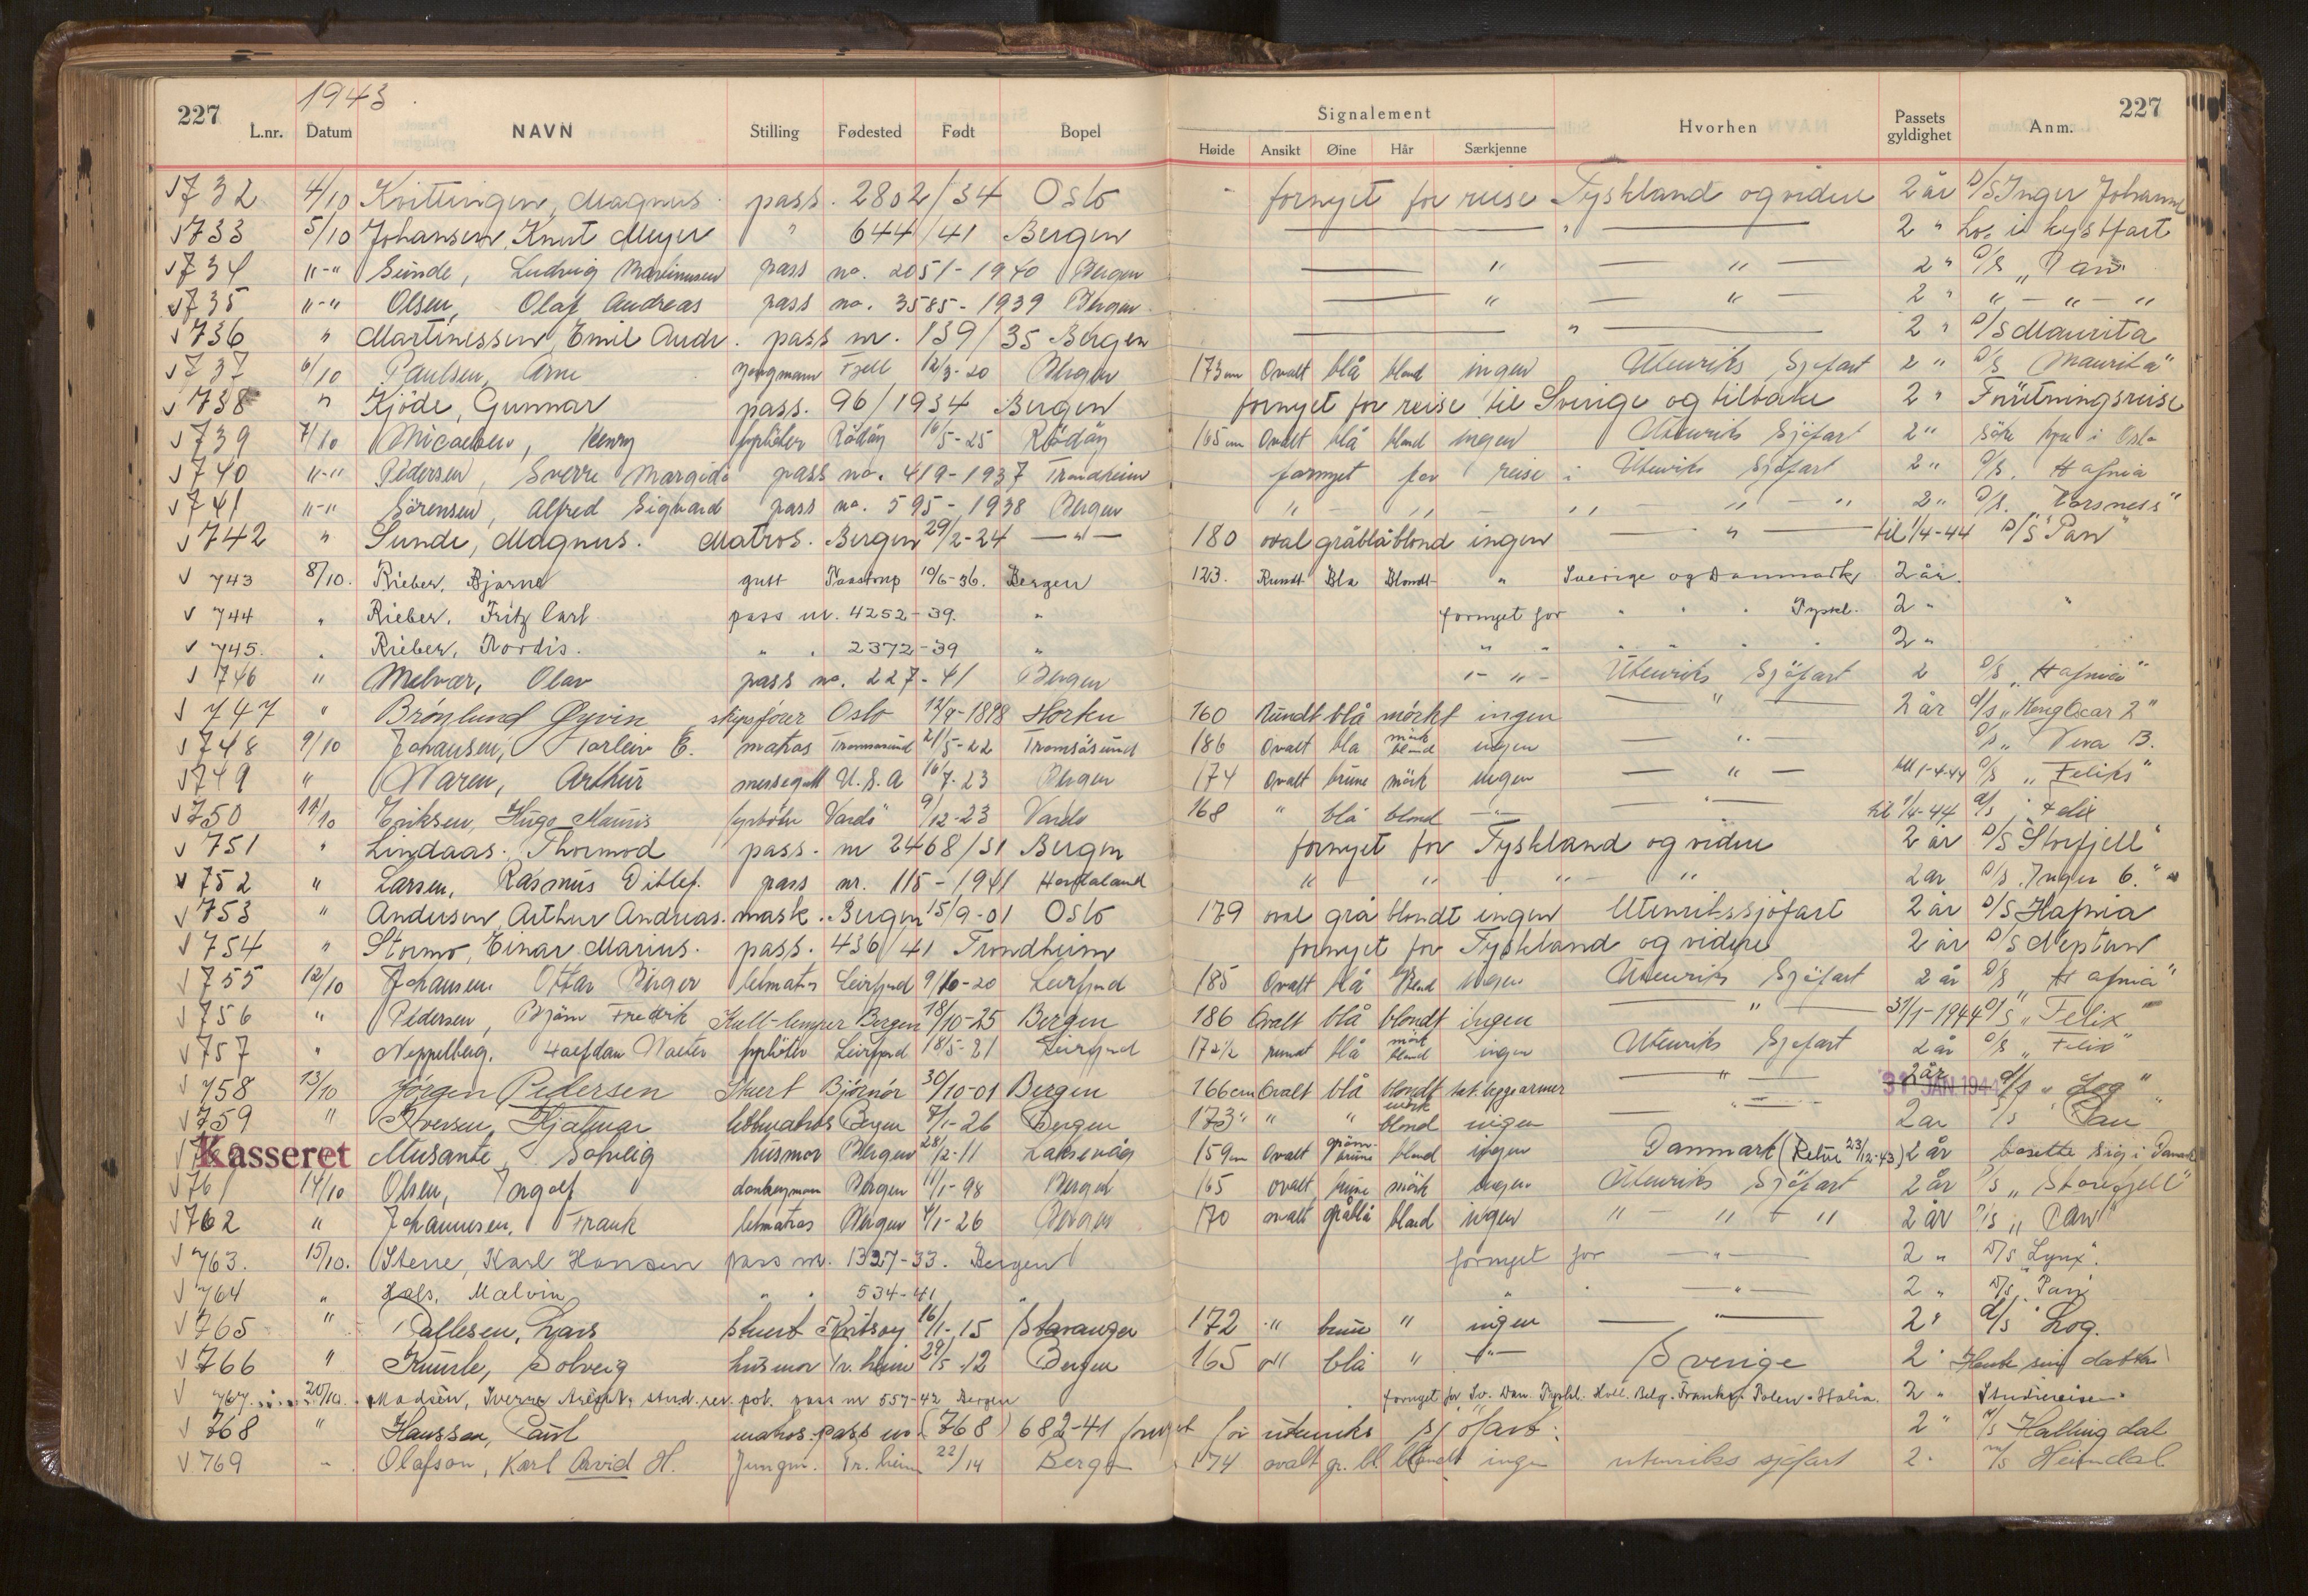 1943
227 L.nr. Datum NAVN Stilling Fødested Født Bopel Signalement Høide Ansikt Øine Hår Særkjenne Hvorhen Passets gyldighet Anm. 227
√732 4/10 Kvittingen, Magnus. pass. 2802/34 Oslo fornyet for reise Tyskland og videre 2 år D/S Inger Johanne
√733 5/10 Johansen, Knut Meyer " 644/41 Bergen — " — 2 " Los i kystfart
√734 "-" Sunde, Ludvig Martinusen pass no. 2051-1940 Bergen — " — " — 2 " D/S "Pan"
√735 "-" Olsen, Olaf Andreas pass no. 3585-1939 Bergen — " — " — 2 " " — " — "
√736 " Martinissen, Emil Andr. pass nr. 139/35 Bergen — " — 2 " D/S Maurita
√737 6/10 Paulsen, Arne jungmann Fjell 12/3-20 Bergen 173 cm Ovalt blå blond ingen Utenriks Sjøfart 2 " D/S "Maurita"
√738 " Kjöde, Gunnar pass. 96/1934 Bergen fornyet for reise til Sverige og tilbake 2 " Forretningsreise
√739 7/10 Micaelsen, Henry fyrböter Rödöy 16/5-25 Rödöy 165 cm Ovalt blå blond ingen Utenriks Sjöfart 2 " Söke hyre i Oslo
√740 "-" Pedersen, Sverre Margido pass no. 419-1937 Trondheim fornyet for reise i Utenriks Sjöfart 2 " D/S. Hafnia
√741 "-" Sörensen, Alfred Sigvard pass no. 595-1938 Bergen " — " — " — " — " 2 " D/S. "Torsness"
√742 " Sunde, Magnus. Matros. Bergen 29/2-24 — " — 180 oval gråblå blond ingen — " — til 1/4-44 D/S "Pan"
√ 743 8/10. Rieber, Bjarne gutt Taastrup 10/6-36. Bergen 123. Rundt Bla Blondt " Sverige og Danmark 2 år.
√ 744 " Rieber, Fritz Carl pass nr. 4252-39. " fornyet for " " " Tyskl. 2 " "
√ 745. " Rieber, Nordis. " " 2372-39 " " " " " " " 2 "
√ 746 " Melvær, Olav pass no. 227-41 Bergen "- " - Utenriks Sjöfart 2 D/S "Hafnia"
√ 747 " Brönlund Øyvin skipsförer Oslo 12/9-1898 160 Rundt blå mörkt ingen — " — 2 år d/s "Kong Oscar 2"
√748 9/10 Johansen, Torleiv E. matros Tromsösund 21/5-22 Tromsösund 186 Ovalt bla mörk blond ingen — " — D/S "Vera B.
√749 " Waren, Arthur messegutt U.S.A 16/7-23 Bergen 174 Ovalt brune mörk ingen — " — till 1-4-44 D/S "Feliks"
√750 11/10 Eriksen, Hugo Mauris fyrböter Vardö 9/12-23 Vardö 168 " blå blond — " — — " — til 1/4-44 d/s "Felix
√ 751 " Lindaas. Thormod pass. nr 2468/31 Bergen fornyet for Tyskland og videre 2 år D/S Storfjell"
√752 " Larsen, Rasmus Ditlef. pass nr. 115-1941 Hordaland " — " — " — " 2 ar D/S. "Inger 6."
√753 " Andersen, Arthur Andreas. mask. Bergen 15/9-01 Oslo 179 oval grå blondt ingen Utenrikssjöfart 2 år D/S Hafnia
√ 754 " Stormo, Einar Marius. pass. 436/41 Trondheim fornyet for Tyskland og videre 2 år D/S Neptun
√ 755 12/10 Johansen Ottar Birger letmatros Leirfjord 9/10-20 Leirfjord 185 Ovalt blå Blond ingen Utenriks Sjöfart 2 år D/S "Hafnia"
√ 756 " Pedersen, Bjørn Fredrik Kull-lemper Bergen 18/10-25 Bergen 186 Ovalt blå blondt ingen — " — 31/1-1944 D/S "Felix"
√757 " Neppelberg, Halfdan fyrböter Leirfjord 18/5-21 Leirfjord 172½ rundt blå mörk blond ingen Utenriks Sjøfart 2 år D/S "Felix"
√ 758 13/10 Jørgen Pedersen Stuert Björnör 30/10-01 Bergen 166 cm Ovalt blå blondt tat. begge armer — " — 2 år 31 JAN. 1944 d/s "Log"
√759 " Iversen, Hjalmar letmatros Bergen 7/1-26 Bergen 173 " " " mörk blond ingen — " — 2 ar D/S Pan
Kasseret Musante, Solveig husmor Bergen 28/2-11 Laksevåg 159 cm Ovalt grönn-brune blond ingen Danmark (Retur 23/12-43) 2 år bosette sig i Danmark
√761 14/10 Olsen, Ingolf donkeyman Bergen 11/1-98 Bergen 165 ovalt brune mörk ingen Utenriks Sjöfart 2 år D/S "Storefjell"
√762 " Johannesen, Frank letmatros Bergen 4/1-26 Bergen 170 ovalt gråblå blond ingen " — " — " 2 år D/S "Pan"
√ 763. 15/10. Stene, Karl Hansen pass nr. 1327-33. Bergen fornyet for — " — 2 " D/S Lynx".
√ 764 " Hals, Malvin " " 534-41 " " " — " — 2 " D/S "Pan"
√ 765 " Pallesen, Lars stuert 16/1-15 Stavanger 172 " brune " ingen — " — 2 " d/s Log.
√ 766 " Solveig husmor Tr.heim 29/5-12 Bergen 165 " blå " — " — Sverige 2 " Hente sin datter
√ 767 20/10. Madsen, Sverre stud. pass nr 557-42 Bergen fornyet for Sv. Dan. Tyskl. Holl. Belg. Frankr. Polen - Italia. 2 " Studiereise
√ 768 " Hanssen, Paul matros. pass no (768) 682-41 fornyet for utenriks sjöfart. 2 " M/S Hallingdal
√ 769 " Olafson, Karl Arvid H. Jungm. Tr.heim 22/14 Bergen 174 ovalt gr. bl. blondt ingen utenriks sjöfart 2 " m/s Heimdal